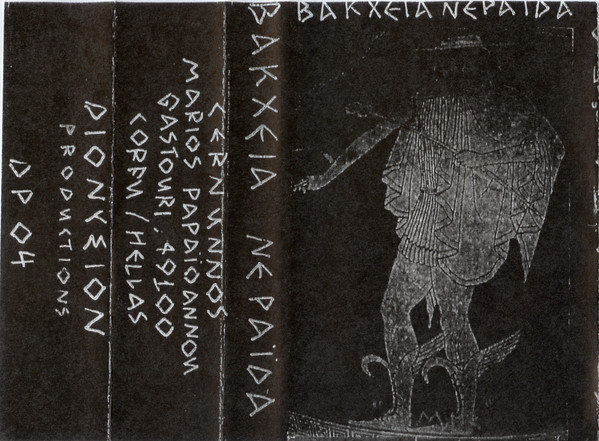 ΒΑΚΧΕΙΑ ΝΕΡΑΪΔΑ
ΒΑΚΧΕΙΑ ΝΕΡΑΪΔΑ
CERNUNNOS
MARIOS PAPAÏOANNOU
GASTOURI, 49100
CORFU / HELLAS
DIONYSION
PRODUCTIONS
DP 04